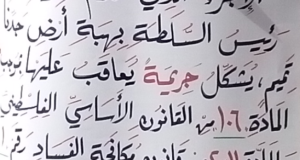 رئيس السلطة بهبة أرض
تميم، يشكل جريمة يعاقب عليها بموجب
المادة ١٠٦ من القانون الأساسي الفلسطيني
قانون مكافحة الفساد رقم